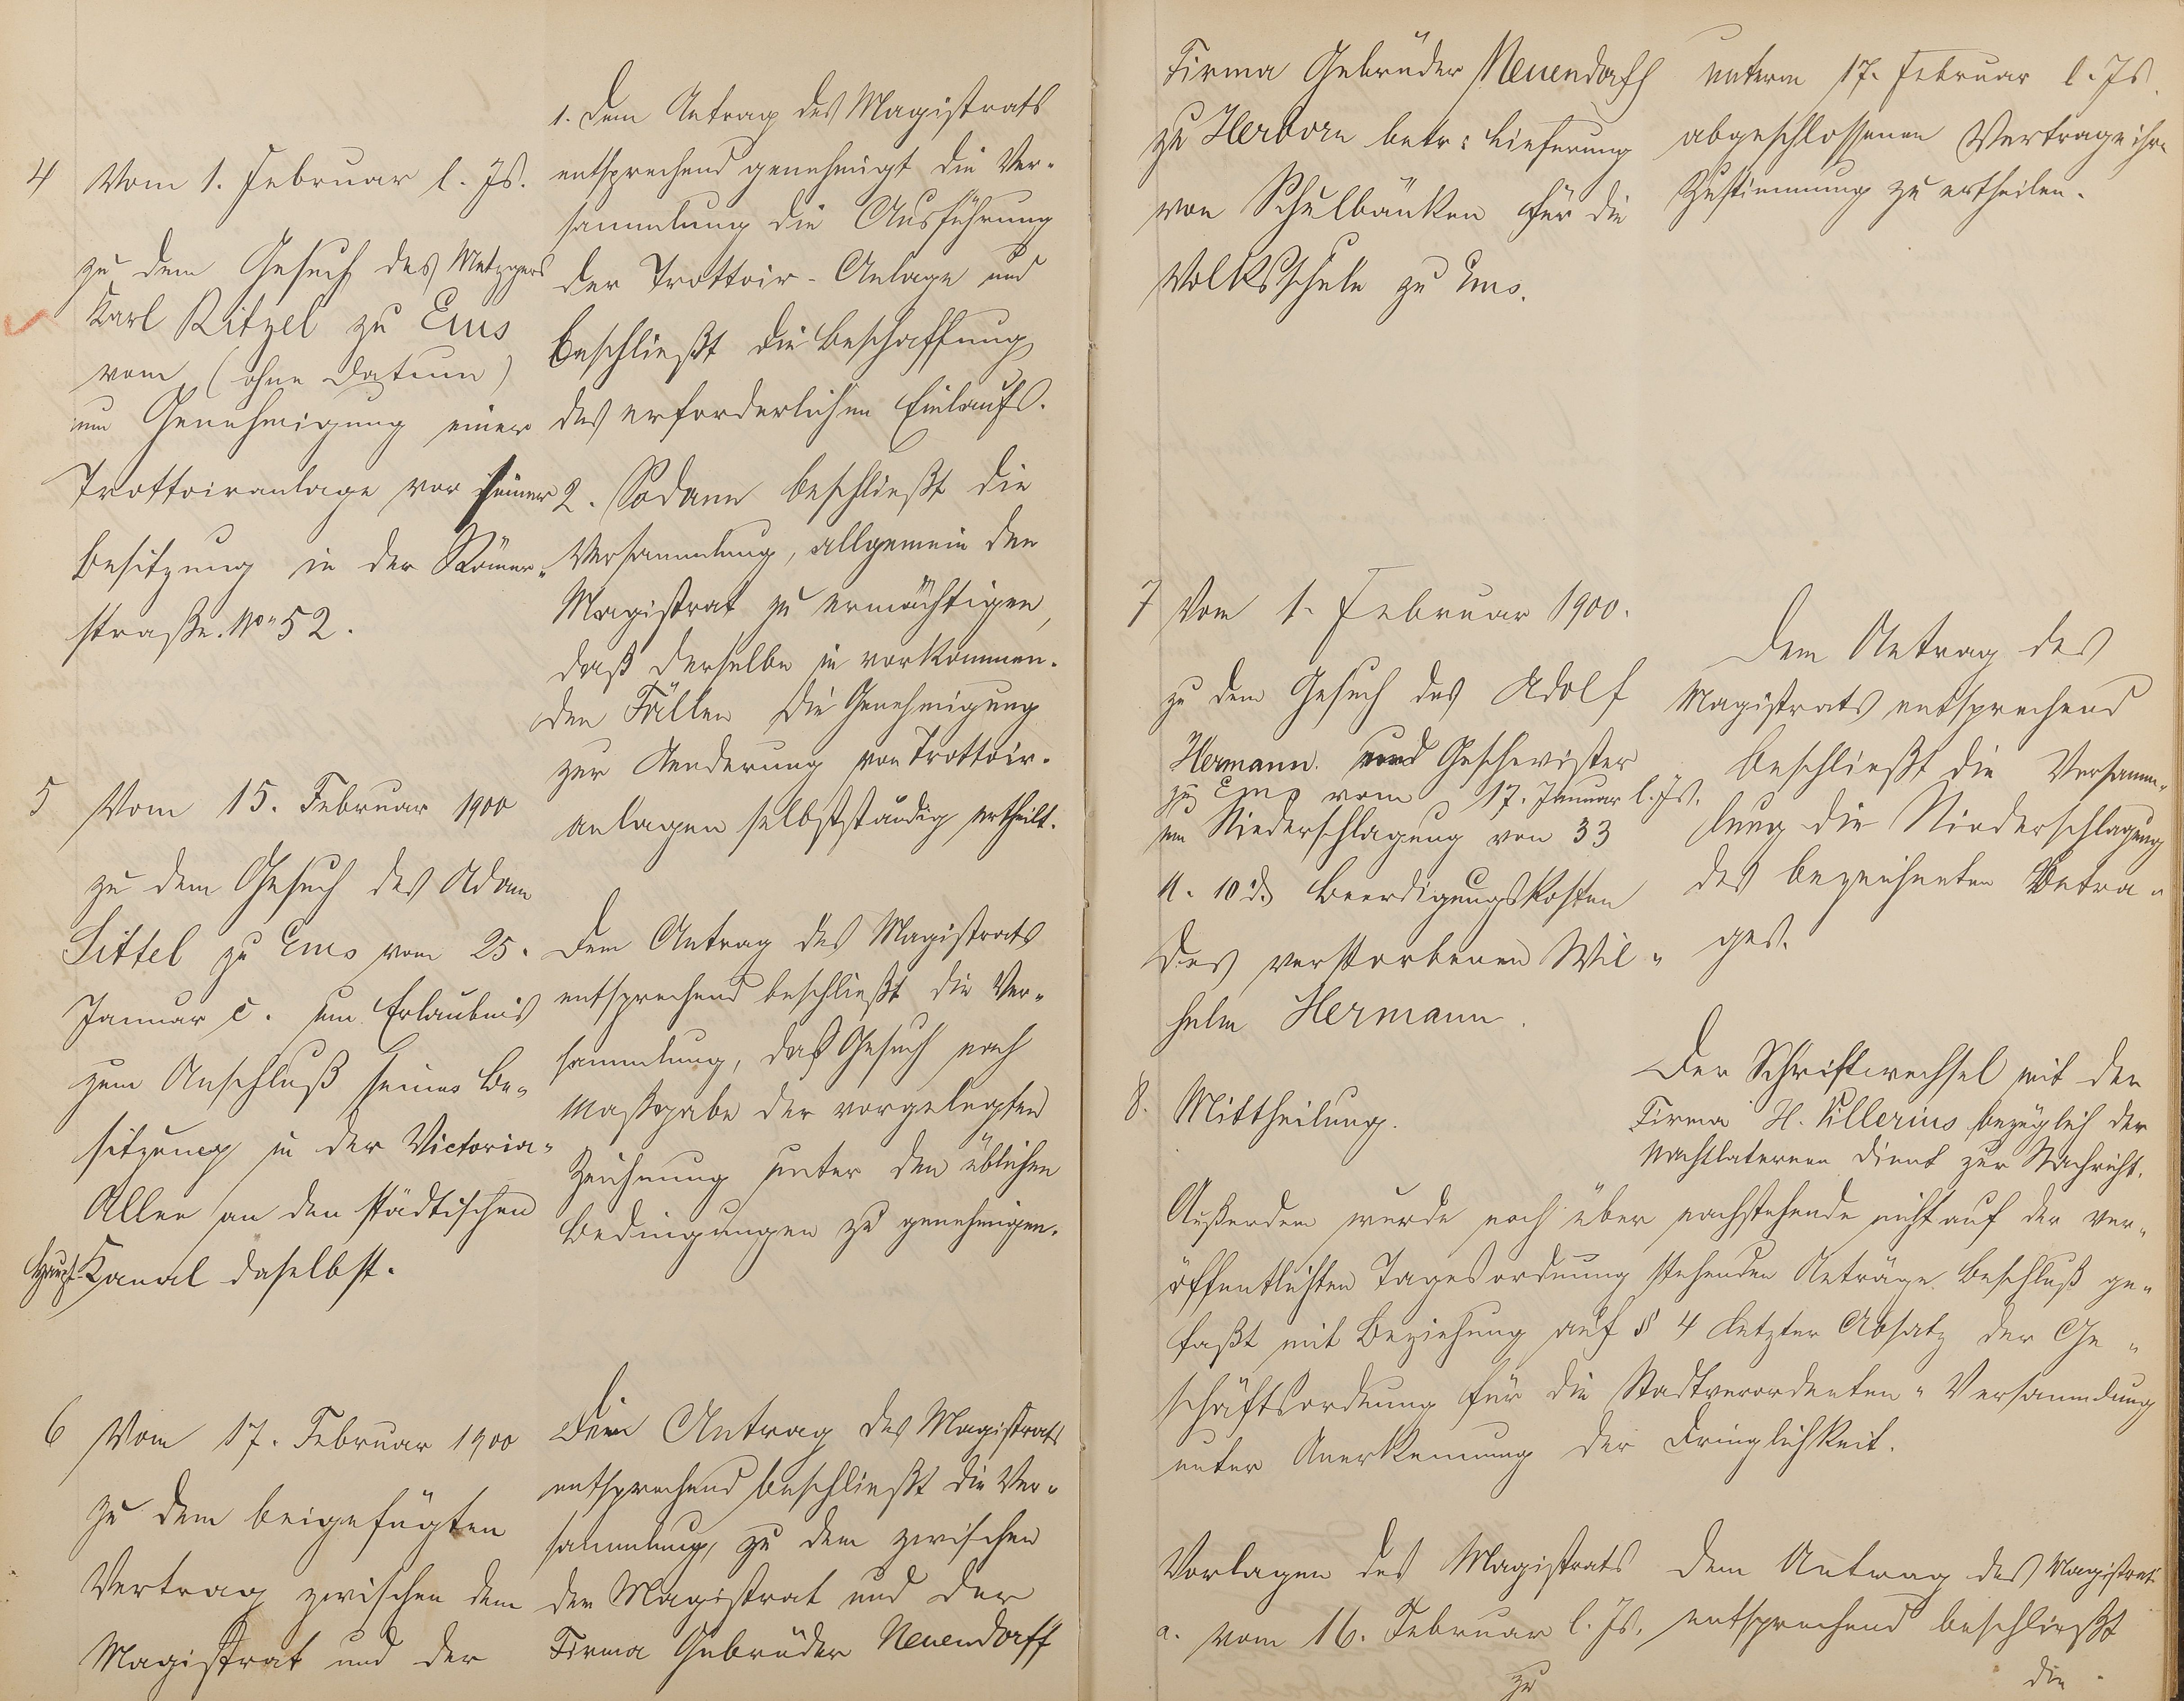 4 Vom 1. Februar l. Js.
zu dem Gesuch des Metzgers
Karl Ritzel zu Ems
vom (ohne Datum)
um Genehmigung einer
Trottoiranlage vor seiner
Besitzung in der Römer-
straße No 52.
1. Dem Antrag des Magistrats
entsprechend genehmigt die Ver-
sammlung die Ausführung
der Trottoir-Anlage und
beschließt die Beschaffung
des erforderlichen Einlaufs.
2. Sodann beschließt die
Versammlung, allgemein den
Magistrat zu ermächtigen,
daß derselbe in vorkommen-
den Fällen die Genehmigung
zur Aenderung von Trottoir-
anlagen selbstständig ertheilt.
5 Vom 15. Februar 1900
zu dem Gesuch des Adam
Sittel zu Ems vom 25.
Januar c. um Erlaubnis
zum Anschluß seiner Be-
sitzung in der Victoria-
Allee an den städtischen
Haupt-Kanal daselbst.
Dem Antrag des Magistrats
entsprechend beschließt die Ver-
sammlung, das Gesuch nach
Maßgabe der vorgelegten
Zeichnung unter den üblichen
Bedingungen zu genehmigen.
6 Vom 17. Februar 1900
zu dem beigefügten
Vertrag zwischen dem
Magistrat und der
Dem Antrag des Magistrats
entsprechend beschließt die Ver-
sammlung, zu dem zwischen
dem Magistrat und der
Firma Gebrüder Neuendorff
Firma Gebrüder Neuendorff
zu Herborn betr: Lieferung
von Schulbänken für die
Volksschule zu Ems.
unterm 17. Februar l. Js.
abgeschlossenen Vertrage ihre
Zustimmung zu ertheilen.
7 Vom 1. Februar 1900.
zu dem Gesuch des Adolf
Hermann und Geschwister
zu Ems vom 17. Januar l. Js.
um Niederschlagung von 33
M. 10 d. Beerdigungskosten
des verstorbenen Wil-
helm Hermann.
Dem Antrag des
Magistrats entsprechend
beschließt die Versamm-
lung die Niederschlagung
des bezeichneten Betra-
ges.
8. Mittheilung.
Der Schriftwechsel mit der
Firma H. Killerius bezüglich der
Nachtlaternen dient zur Nachricht.
Außerdem wurde noch über nachstehende nicht auf der ver-
öffentlichten Tagesordnung stehenden Anträge Beschluß ge-
faßt mit Beziehung auf § 4 letzter Absatz der Ge-
schäftsordnung für die Stadtverordneten-Versammlung
unter Anerkennung der Dringlichkeit.
Vorlagen des Magistrats
a. vom 16. Februar l. Js.
zu
Dem Antrag des Magistrats
entsprechend beschließt
die